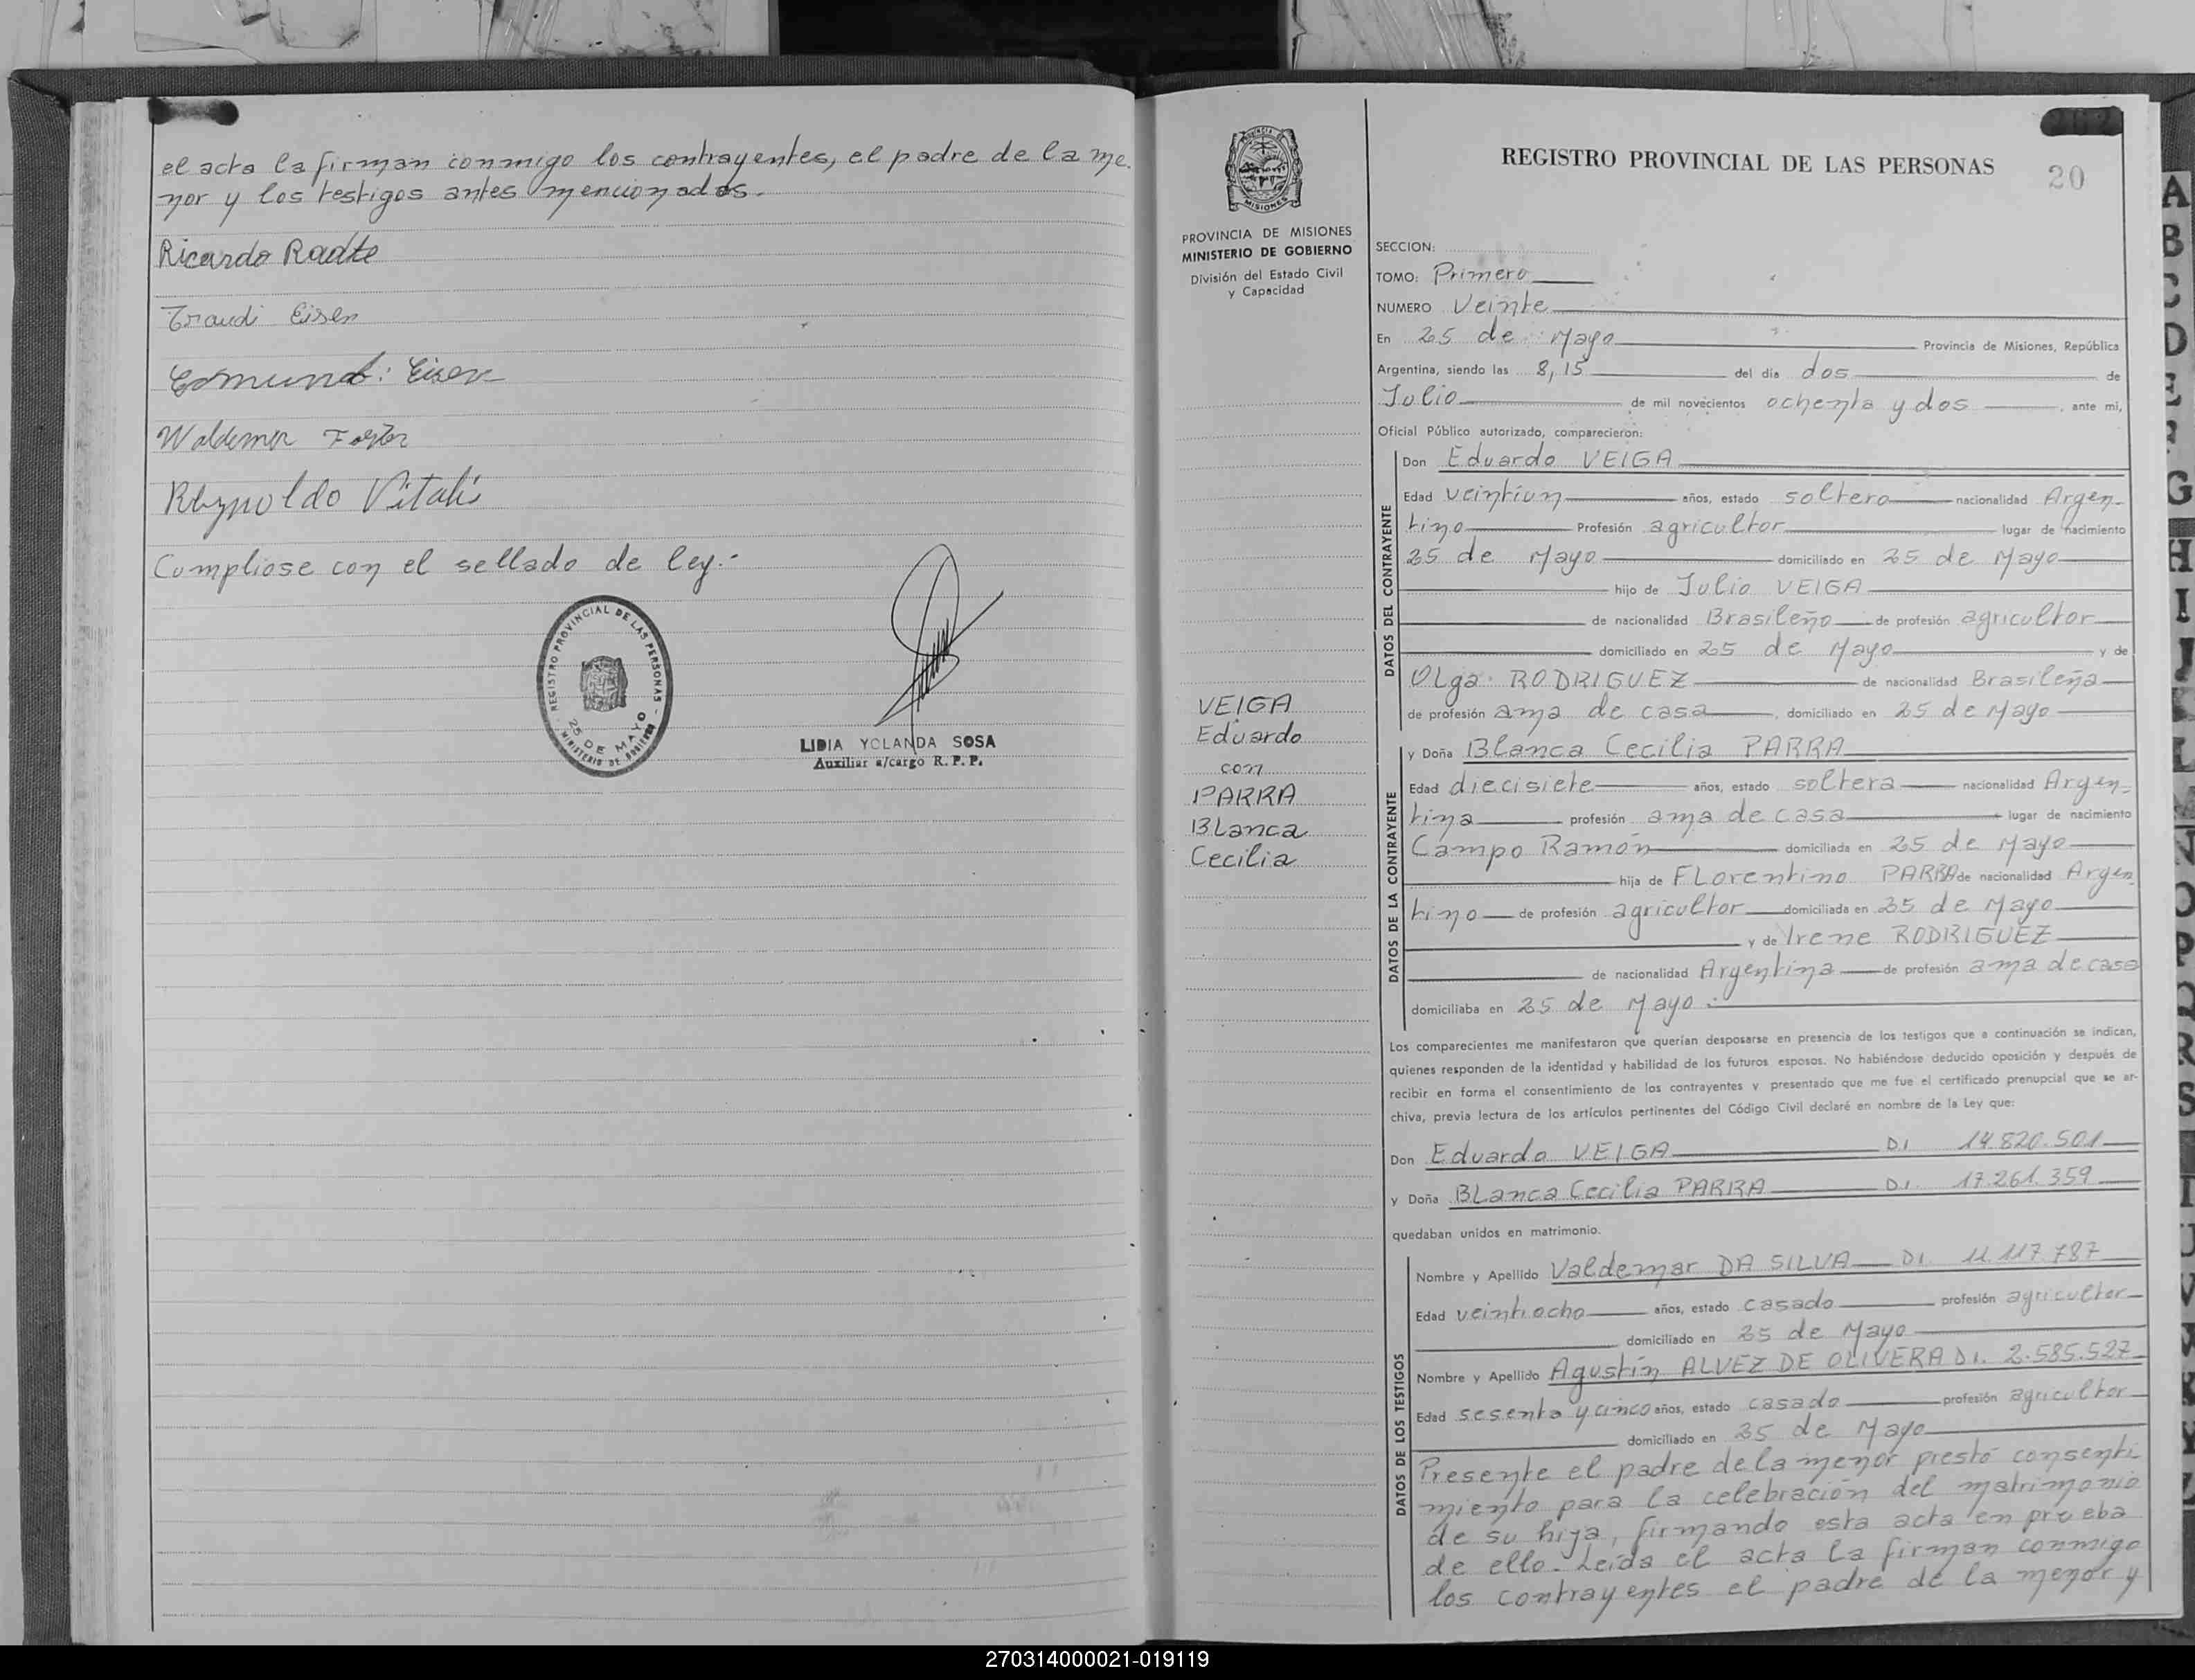 el acta la firman conmigo los contrayentes, el padre de la me-
nor y los testigos antes mencionados.
Ricardo Radke
Traudi Eisen
Edmund: Eisen
Waldemar
Reynoldo Vitali
Cumpliose con el sellado de ley.-
REGISTRO PROVINCIAL DE LAS PERSONAS -
25 DE MAYO
MINISTERIO DE GOBIERNO
LIDIA YOLANDA SOSA
Auxiliar a/cargo R. P. P.
PROVINCIA DE
MISIONES
PROVINCIA DE MISIONES
MINISTERIO DE GOBIERNO
División del Estado Civil
y Capacidad
VEIGA
Eduardo
con
PARRA
Blanca
Cecilia
REGISTRO PROVINCIAL DE LAS PERSONAS 20
SECCION:
TOMO: Primero
NUMERO Veinte
En 25 de Mayo Provincia de Misiones, República
Argentina, siendo las 8,15 del día dos de
Julio de mil novecientos ochenta y dos, ante mi,
Oficial Público autorizado, comparecieron:
DATOS DEL CONTRAYENTE
Don Eduardo VEIGA
Edad veintiun años, estado soltero nacionalidad Argen-
tino Profesión agricultor lugar de nacimiento
25 de Mayo domiciliado en 25 de Mayo
hijo de Julio VEIGA
de nacionalidad Brasileño de profesión agricultor
domiciliado en 25 de Mayo y de
Olga RODRIGUEZ de nacionalidad Brasileña
de profesión ama de casa, domiciliado en 25 de Mayo
DATOS DE LA CONTRAYENTE
y Doña Blanca Cecilia PARRA
Edad diecisiete años, estado soltera nacionalidad Argen-
tina profesión ama de casa lugar de nacimiento
Campo Ramón domiciliada en 25 de Mayo
hija de Florentino PARRA de nacionalidad Argen
tino de profesión agricultor domiciliada en 25 de Mayo
y de Irene RODRIGUEZ
de nacionalidad Argentina de profesión ama de casa
domiciliaba en 25 de Mayo.
Los comparecientes me manifestaron que querían desposarse en presencia de los testigos que a continuación se indican,
quienes responden de la identidad y habilidad de los futuros esposos. No habiéndose deducido oposición y después de
recibir en forma el consentimiento de los contrayentes y presentado que me fue el certificado prenupcial que se ar-
chiva, previa lectura de los artículos pertinentes del Código Civil declaré en nombre de la Ley que:
Don Eduardo VEIGA D.I 14.820.501
y Doña Blanca Cecilia PARRA D.I. 17.261.359
quedaban unidos en matrimonio.
DATOS DE LOS TESTIGOS
Nombre y Apellido Valdemar DA SILVA D.I. 11.117.787
Edad veintiocho años, estado casado profesión agricultor
domiciliado en 25 de Mayo
Nombre y Apellido Agustín ALVEZ DE OLIVERA D.I. 2.585.527
Edad sesenta y cinco años, estado casado profesión agricultor
domiciliado en 25 de Mayo
Presente el padre de la menor prestó consenti
miento para la celebración del matrimonio
de su hija, firmando esta acta en prueba
de ello. Leída el acta la firman conmigo
los contrayentes el padre de la menor y
270314000021-019119